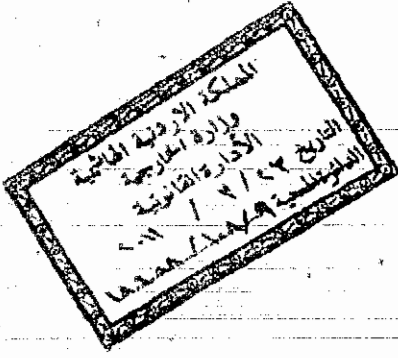 المملكة الاردنية الهاشمية
وزارة الخارجية
الأدارة القانونية
التاريخ ٢٣ / ٣ / ٢٠١١